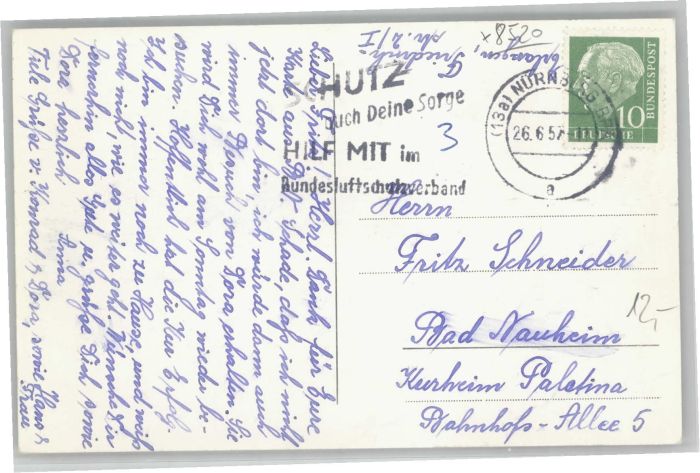 x 8520
Erlangen, Friedrich-
str. 2/I
SCHUTZ
auch Deine Sorge
HILF MIT im
Bundesluftschutzverband
(13a) NÜRNBERG
26.6.57
a
10
DEUTSCHE
BUNDESPOST
3
Herrn
Fritz Schneider
Bad Nauheim
Kurheim Palatina
Bahnhofs-Allee 5
12,-
Lieber Fritz! Herzl. Dank für Eure
Karte aus Schade, daß ich nicht
jetzt dort bin, ich würde dann auch
immer Besuch von Dora erhalten. Sie
wird Dich wohl am Sonntag wieder be-
suchen. Hoffentlich hat die Kur Erfolg.
Ich bin immer noch zu Hause, und weiß
noch nicht, wie es weiter geht. Wünsche Dir
fernerhin alles Gute u. grüße Dich sowie
Dora herzlich Anna
Viele Grüße v. Konrad & Dora, sowie Hans &
Frau